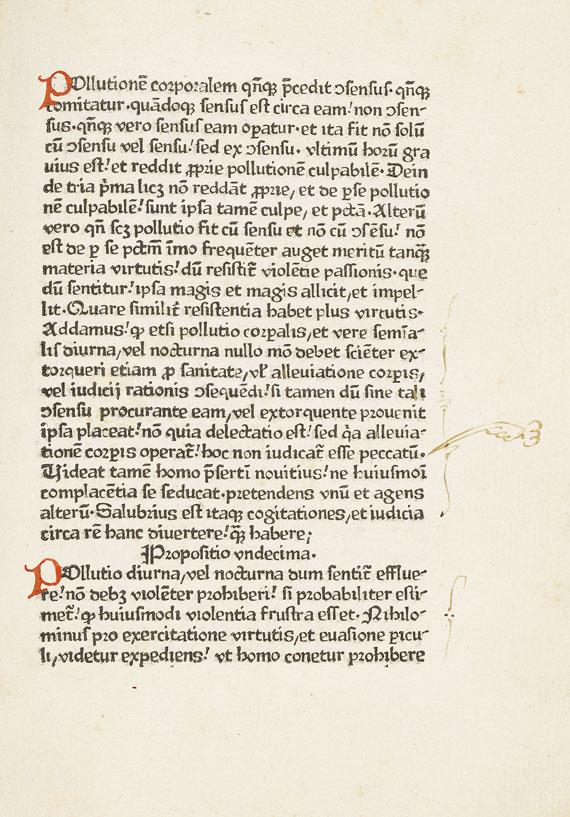 POllutionē corporalem qn̄qꝫ p̄cedit ↄsensus· qn̄qꝫ
comitatur·quādoqꝫ sensus est circa eam! non ↄsen-
sus·qn̄qꝫ vero sensus eam oꝑatur·et ita fit nō solū
cū ↄsensu vel sensu! sed ex ↄsensu· vltimū horū gra
uius est! et reddit ꝓprie pollutionē culpabilē· Dein
de tria p̄ma licꝫ nō reddāt ꝓprie, et de ꝑse pollutio
nē culpabilē! sunt ipsa tamē culpe, et pctā· Alterū
vero qn̄ scꝫ pollutio fit cū sensu et nō cū ↄsēsu! nō
est de ꝑ se pctm̄ īmo frequēter auget meritū tanqꝫ̄
materia virtutis! dū resistit̄ violētie passionis· que
dū sentitur! ipsa magis et magis allicit, et impel-
lit· Quare similit̄ resistentia habet plus virtutis·
Addamus! ꝙ etsi pollutio corꝑalis, et vere semīa-
lis diurna, vel nocturna nullo mō debet sciēter ex-
torqueri etiam ꝓ sanitate, vł alleuiatione corꝑis,
vel iudicij rationis ↄsequēdi! si tamen dū sine tali
ↄsensu procurante eam, vel extorquente prouenit
ipsa placeat! nō quia delectatio est! sed q̇a alleuia-
tionē corꝑis oꝑat̄! hoc non iudicat̄ esse peccatū·
Uideat tamē homo p̄serti nouitius! ne huiusmōi
complacētia se seducat· pretendens vnū et agens
alterū· Salubrius est itaqꝫ cogitationes, et iudicia
circa rē hanc diuertere! qꝫ̄ habere;
Propositio vndecima·
POllutio diurna, vel nocturna dum sentit̄ efflue-
re! nō debꝫ violēter prohiberi! si probabiliter esti-
met̄! ꝙ huiusmodi violentia frustra esset· Nihilo-
minus pro exercitatione virtutis, et euasione ꝑicu-
li, videtur expediens! vt homo conetur prohibere